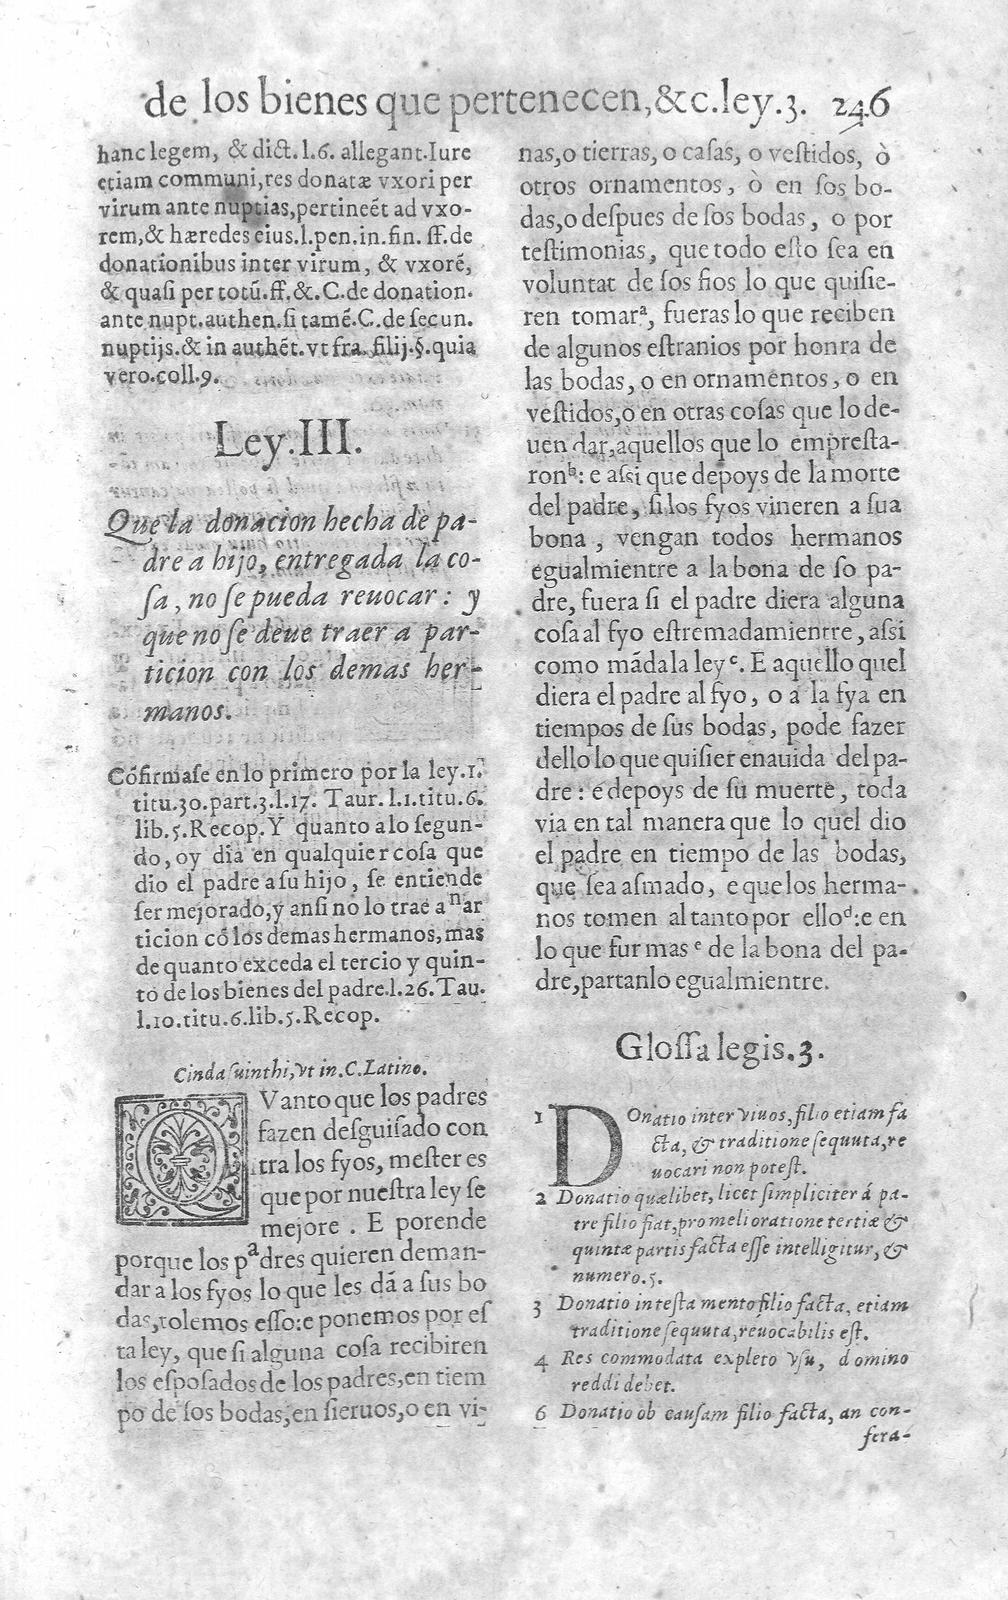 de los bienes que pertenecen,&c.ley.3. 246
hanc legem, & dict.l.6. allegant.Iure
etiam communi,res donatæ vxori per
virum ante nuptias,pertineēt ad vxo-
rem,& hæredes eius.l.pen.in.fin. ff.de
donationibus inter virum, & vxorē,
& quasi per totū.ff.&.C.de donation.
ante nupt.authen.si tamē.C.de secun.
nuptijs.& in authēt.vt fra. filij.§.quia
vero.coll.9.
Ley.III.
Que la donacion hecha de pa-
dre a hijo, entregada la co-
sa, no se pueda reuocar: y
que no se deue traer a par-
ticion con los demas her-
manos.
Cōfirmase en lo primero por la ley.1.
titu.30.part.3.l.17. Taur.l.1.titu.6.
lib.5.Recop.Y quanto a lo segun-
do, oy dia en qualquier cosa que
dio el padre a su hijo, se entiende
ser mejorado,y ansi no lo trae a nar
ticion cō los demas hermanos,mas
de quanto exceda el tercio y quin-
to de los bienes del padre.l.26.Tau.
l.10.titu.6.lib.5.Recop.
Cindasuinthi,vt in.C.Latino.
QVanto que los padres
fazen desguisado con
tra los fyos, mester es
que por nuestra ley se
mejore . E porende
porque los padres quieren deman-
dar a los fyos lo que les dā a sus bo
das,tolemos esso:e ponemos por es
ta ley, que si alguna cosa recibiren
los esposados de los padres,en tiem
po de sos bodas,en sieruos,o en vi-
nas,o tierras, o casas, o vestidos, ò
otros ornamentos, ò en sos bo-
das,o despues de sos bodas, o por
testimonias, que todo esto sea en
voluntat de sos fios lo que quisie-
ren tomarᵃ, fueras lo que reciben
de algunos estranios por honra de
las bodas, o en ornamentos, o en
vestidos,o en otras cosas que lo de-
uen dar,aquellos que lo empresta-
ronᵇ: e assi que depoys de la morte
del padre, si los fyos vineren a sua
bona , vengan todos hermanos
egualmientre a la bona de so pa-
dre, fuera si el padre diera alguna
cosa al fyo estremadamientre, assi
como māda la leyᶜ. E aquello quel
diera el padre al fyo, o a la fya en
tiempos de sus bodas, pode fazer
dello lo que quisier enauida del pa-
dre: e depoys de su muerte, toda
via en tal manera que lo quel dio
el padre en tiempo de las bodas,
que sea asmado, e que los herma-
nos tomen al tanto por elloᵈ:e en
lo que fur masᵉ de la bona del pa-
dre,partanlo egualmientre.
Glossa legis.3.
1 DOnatio inter viuos,filio etiam fa
cta, & traditione sequuta,re
uocari non potest.
2 Donatio quælibet, licet simpliciter á pa-
tre filio fiat,pro melioratione tertiæ &
quintæ partis facta esse intelligitur, &
numero.5.
3 Donatio in testamento filio facta, etiam
traditione sequuta,reuocabilis est.
4 Res commodata expleto vsu, domino
reddi debet.
6 Donatio ob causam filio facta, an con-
fera-